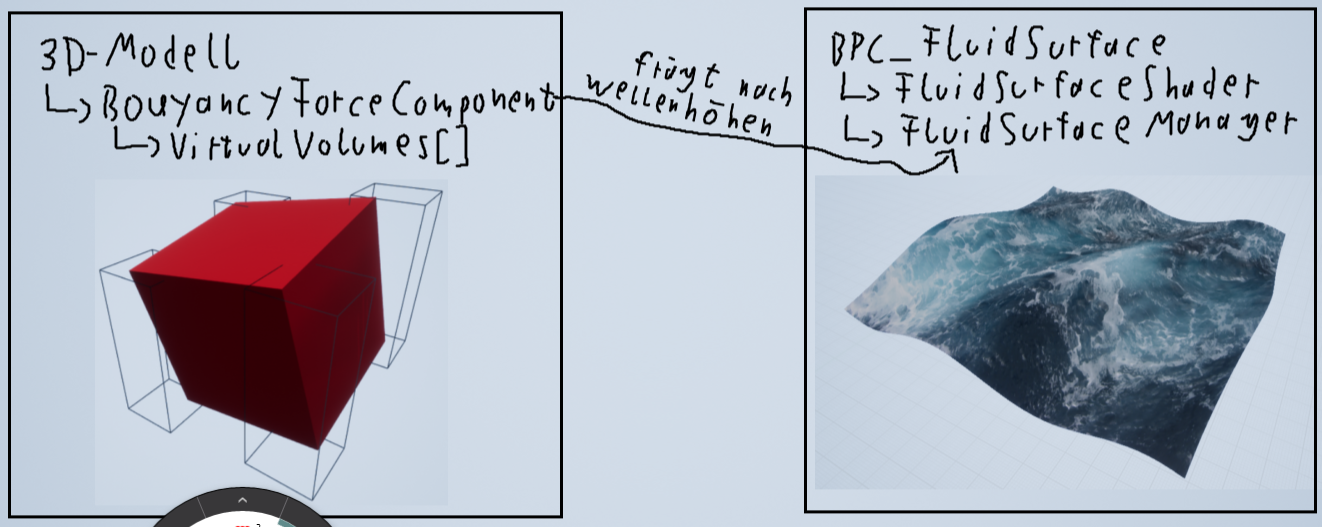 3D-Modell
↳ BouyancyForceComponent
↳ VirtualVolumes[]
frägt nach
wellenhöhen
BPC_FluidSurface
↳ FluidSurfaceShader
↳ FluidSurfaceManager